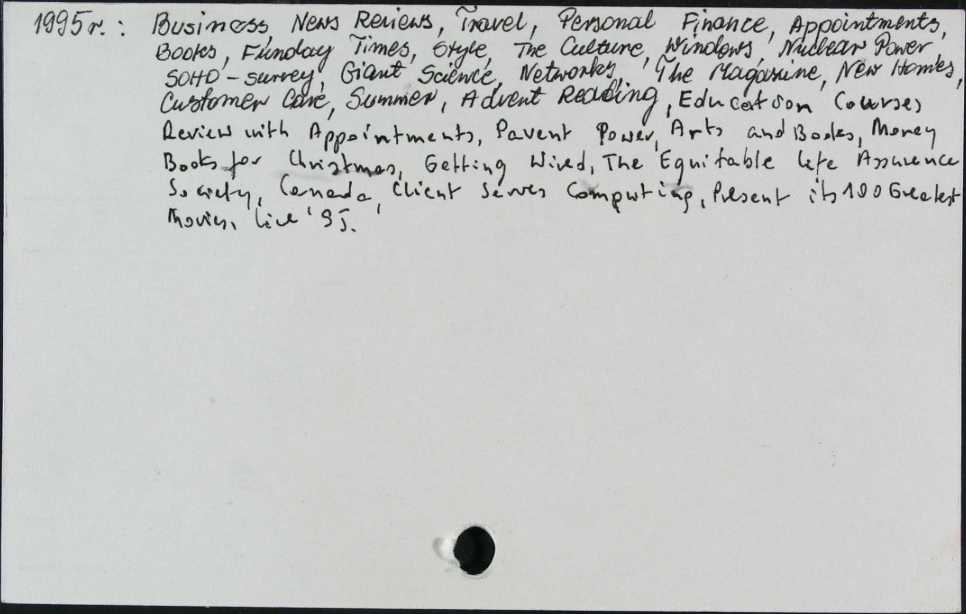 1995r.: Business, News Reviews, Travel, Personal Finance, Appointments,
Books, Funday Times, Style, The Culture, Windows, Nuclear Power,
SOHO-survey, Giant Science, Networks, The Magazine, New Homes,
Customer Care, Summer, Advent Reading, Education Courses
Review with Appointments, Parent Power, Arts and Books, Money
Books for Christmas, Getting Wired, The Equitable Life Assurance
Society, Canada, Client Server Computing, Present its 100 Greatest
Movies, Live '95.